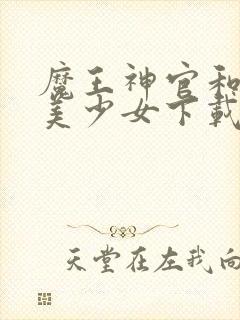 魔王神官和
美少女下载
天堂在左我向